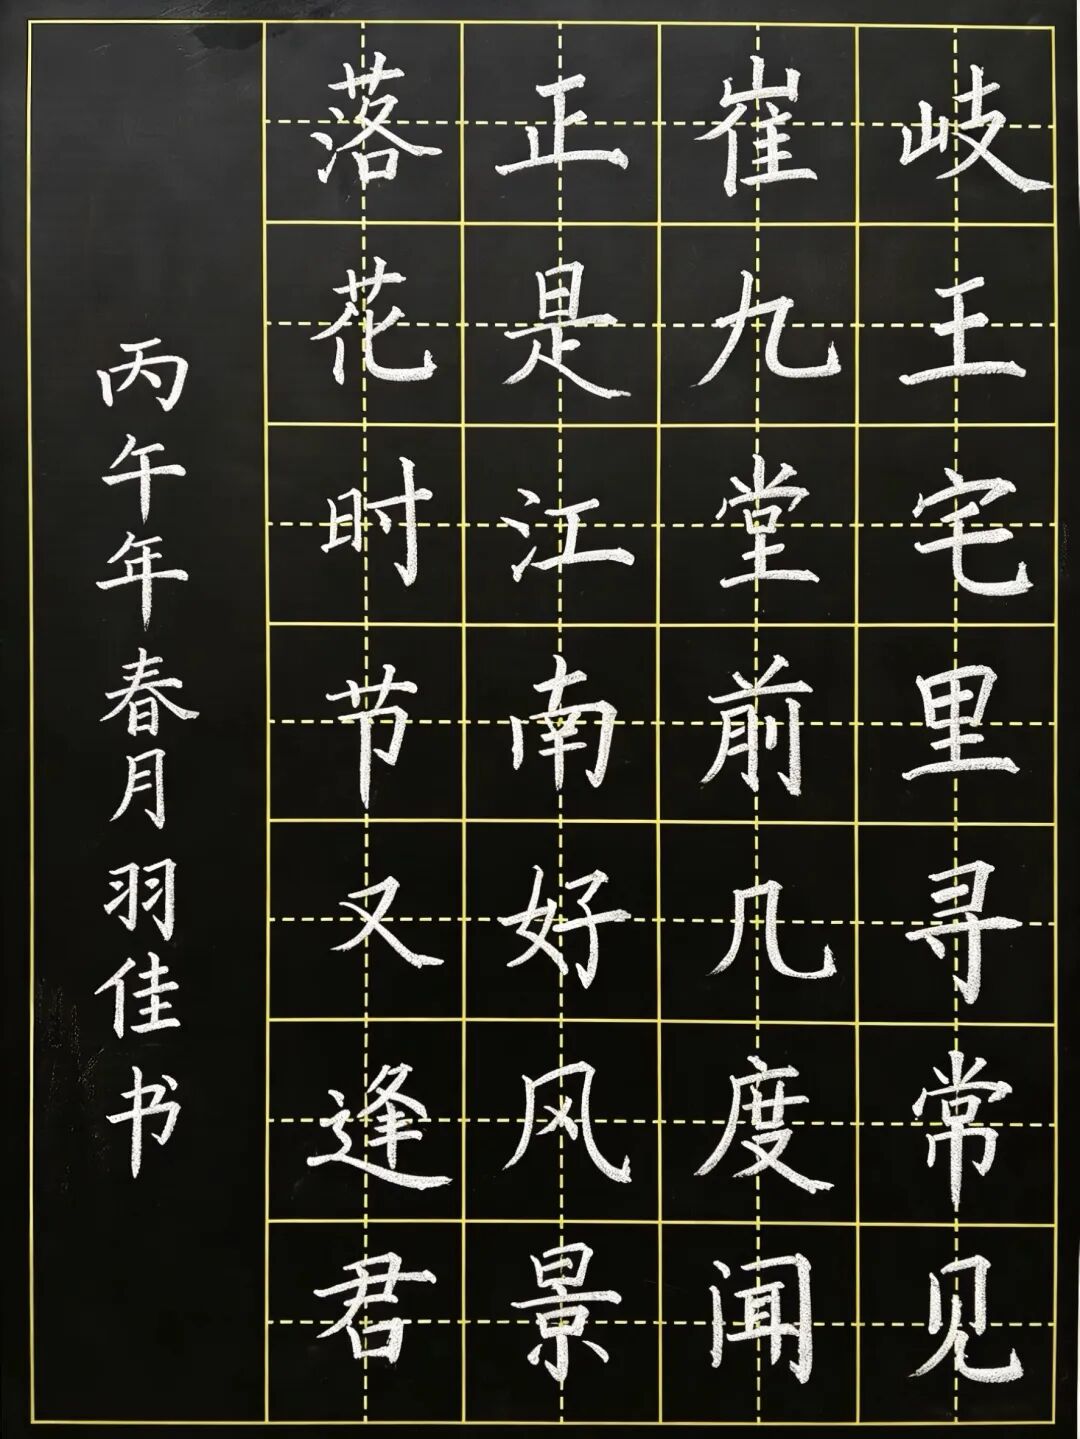 岐王宅里寻常见
崔九堂前几度闻
正是江南好风景
落花时节又逢君
丙午年春月羽佳书